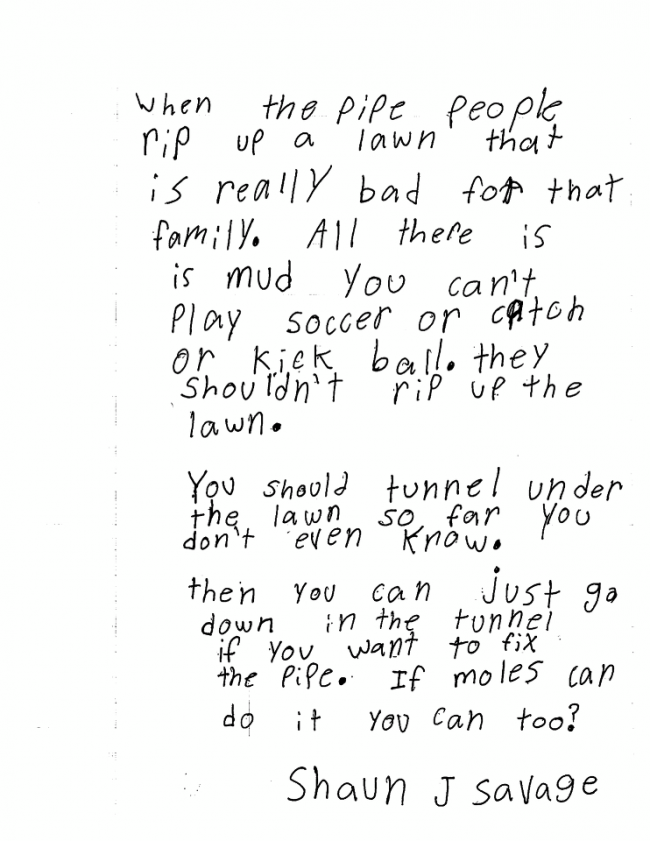 when the pipe people
rip up a lawn that
is really bad for that
family. All there is
is mud you can't
Play soccer or catch
or kick ball. they
shouldn't rip up the
lawn.
You should tunnel under
the lawn so far you
don't even know.
then you can just go
down in the tunnel
if you want to fix
the pipe. If moles can
do it you can too?
Shaun J Savage